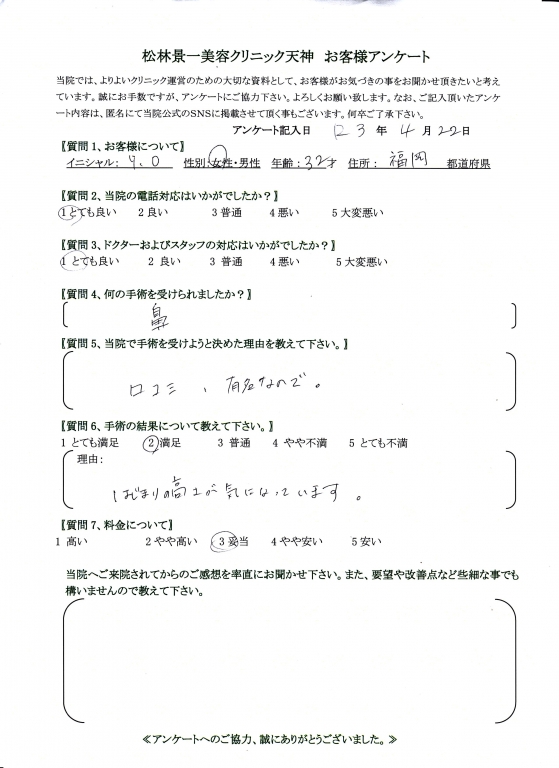 松林景一美容クリニック天神 お客様アンケート
当院では、よりよいクリニック運営のための大切な資料として、お客様がお気づきの事をお聞かせ頂きたいと考え
ています。誠にお手数ですが、アンケートにご協力下さい。よろしくお願い致します。なお、ご記入頂いたアンケ
ート内容は、匿名にて当院公式のSNSに掲載させて頂く事もございます。何卒ご了承下さい。
アンケート記入日 R3 年 4 月 22 日
〖質問1、お客様について〗
イニシャル: Y.O 性別:女性・男性 年齢:32才 住所: 福岡 都道府県
〖質問2、当院の電話対応はいかがでしたか?〗
1とても良い 2良い 3普通 4悪い 5大変悪い
〖質問3、ドクターおよびスタッフの対応はいかがでしたか?〗
1 とても良い 2 良い 3 普通 4悪い 5大変悪い
〖質問4、何の手術を受けられましたか?〗
鼻
〖質問5、当院で手術を受けようと決めた理由を教えて下さい。〗
口コミ、有名なので。
〖質問6、手術の結果について教えて下さい。〗
1 とても満足 2満足 3 普通 4 やや不満 5 とても不満
理由:
はじまりの高さが気になっています。
〖質問7、料金について〗
1 高い 2やや高い 3妥当 4やや安い 5安い
当院へご来院されてからのご感想を率直にお聞かせ下さい。また、要望や改善点など些細な事でも
構いませんので教えて下さい。
≪アンケートへのご協力、誠にありがとうございました。≫